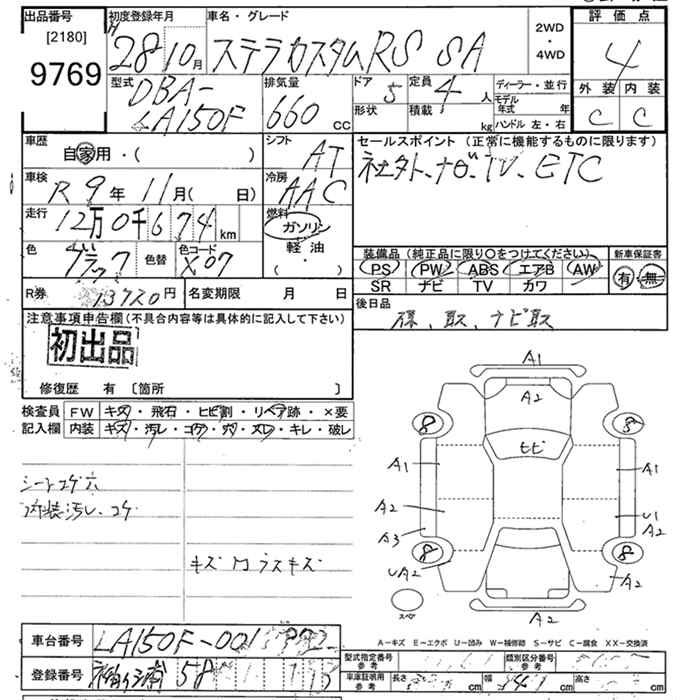 出品番号 初度登録年月 車名・グレード 2WD ・ 4WD 評価点
[2180]
9769
H 28年 10月 ステラカスタムRS SA 4
型式 排気量 ドア 定員 ディーラー・並行 外装 内装
DBA-
LA150F 660 cc 5 4人 モデル年式 年 C C
形状 積載 kg ハンドル 左・右
車歴 シフト セールスポイント (正常に機能するものに限ります)
自家用・( ) AT 社外ナビ、TV、ETC
車検 R 9年 11月(日 冷房 AAC
走行 12万0千674km 燃料 ガソリン
軽油
( )
色 ブラック 色替 色コード X07
装備品(純正品に限り○をつけてください) 新車保証書
PS PW ABS エアB AW 有・無
SR ナビ TV カワ
R券 13720円 名変期限 月 日 後日品
保、取、ナビ取
注意事項申告欄(不具合内容等は具体的に記入して下さい)
初出品
修復歴 有 〔箇所 〕
検査員 FW キズ・飛石・ヒビ割・リペア跡・×要
記入欄 内装 キズ・汚レ・コゲ・穴・スレ・キレ・破レ
シートコゲ穴
内装汚レ、コゲ
キズ
A1
A2
8 8
ヒビ
A1 A1
A2 U1
A2
A3
8 8
UA2 A2
A2
スペア
A-キズ E-エクボ U-凹み W-補修跡 S-サビ C-腐食 XX-交換済
車台番号 LA150F-001
型式指定番号 参考 類別区分番号 参考
登録番号 58
車庫証明用 参考 長さ cm 幅 cm 高さ cm